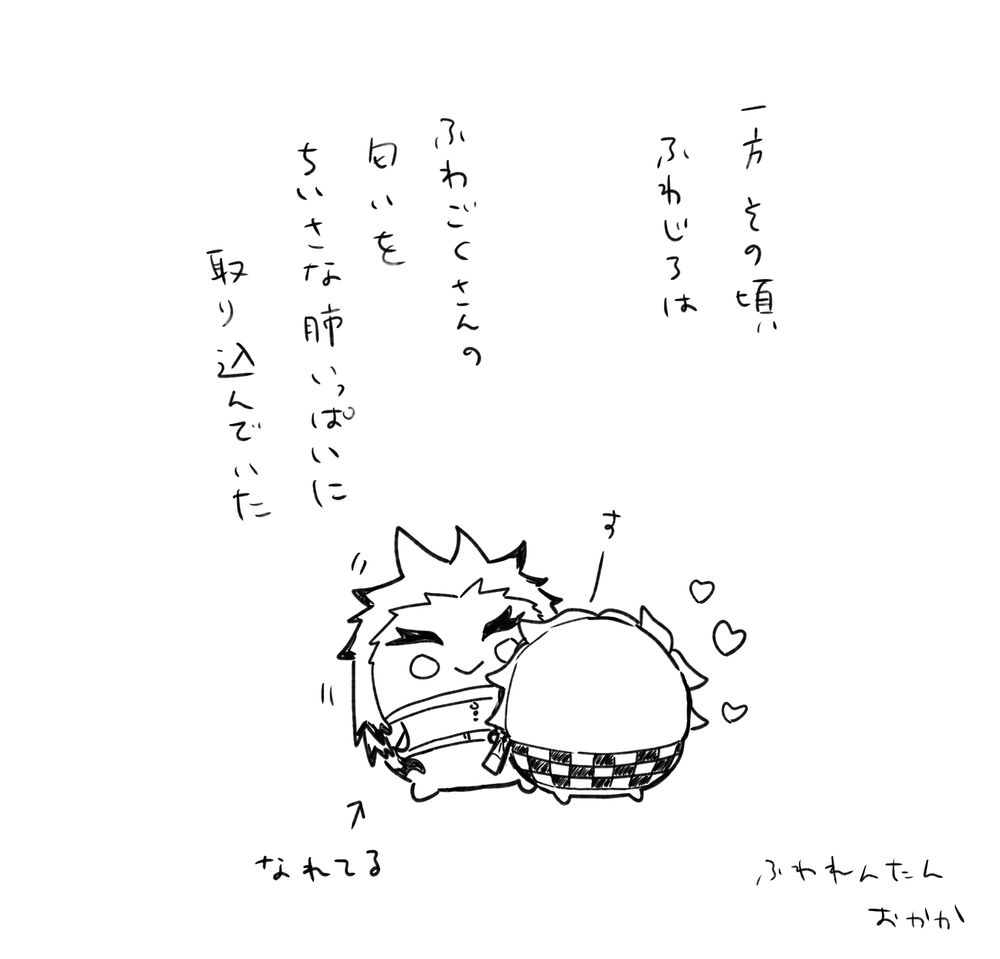 一方 その頃
ふわじろは
ふわごくさんの
匂いを
ちいさな肺いっぱいに
取り込んでいた
す
なれてる
ふわれんたん
おかか